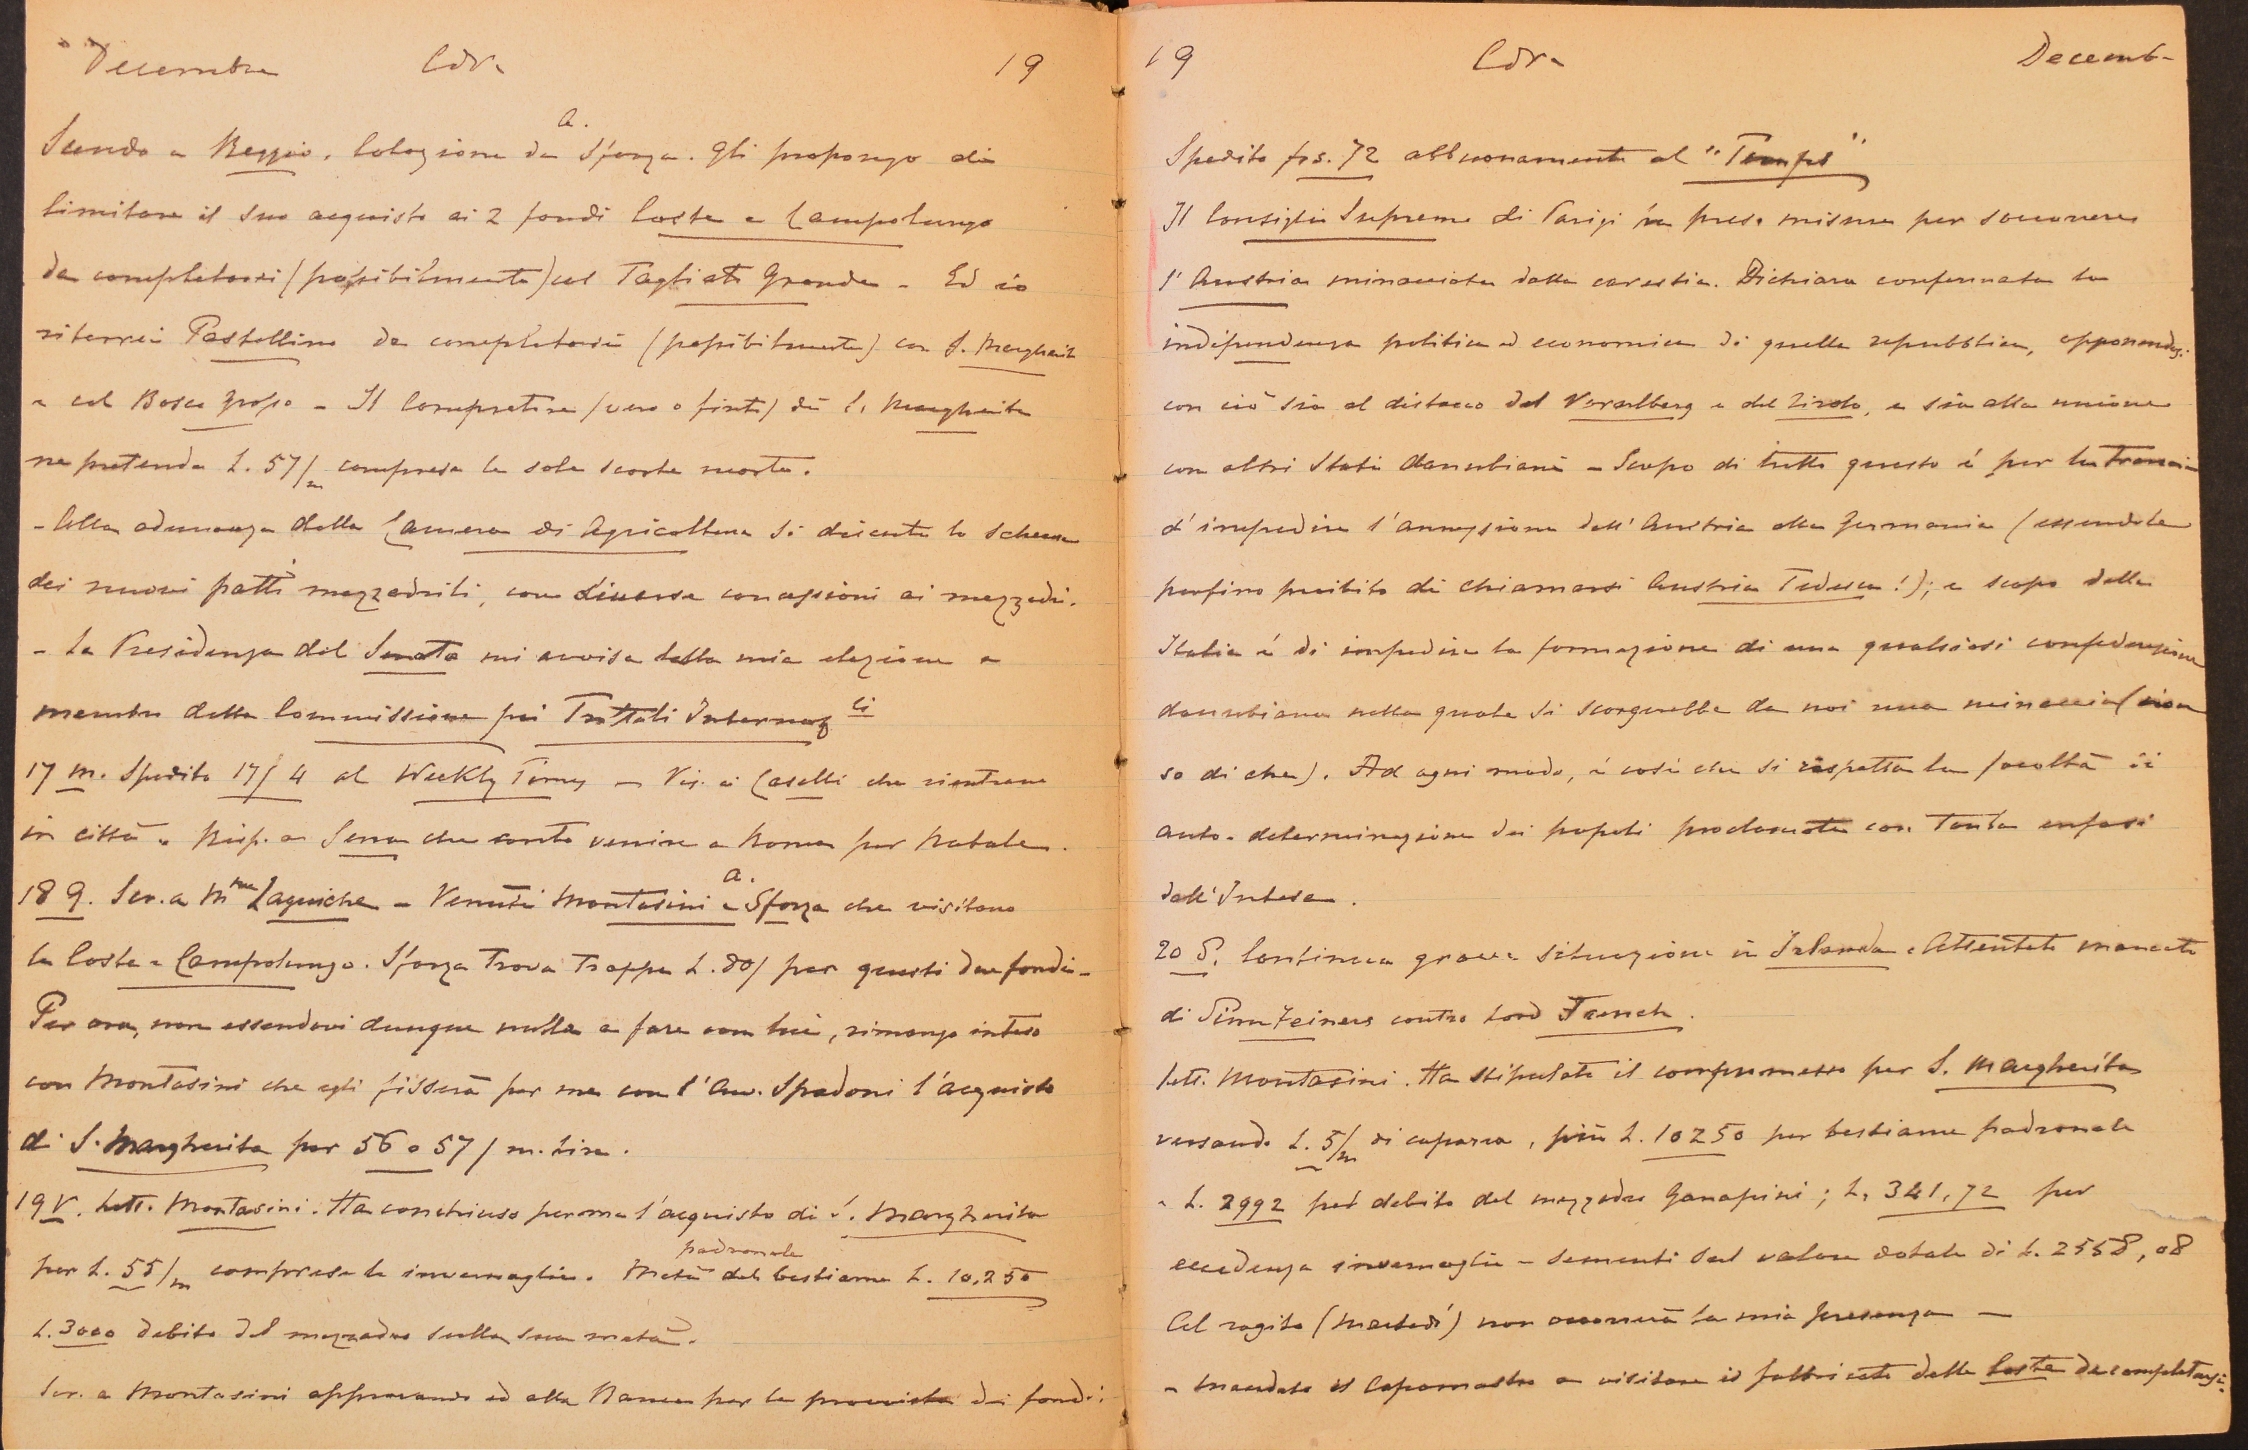 Decembre Cdr. 19
Scendo a Reggio. Colazione da A. Sforza. Gli propongo di
limitare il suo acquisto ai 2 fondi Coste e Campolungo
da completarsi (possibilmente) col Tagliate Grande - Ed io
riterrei Pastellino da completarsi (possibilmente) con S. Margherita
e col Bosco grosso - Il Compratore (vero o finto) di S. Margherita
ne pretende L. 57/m compresa la sola scorta morta.
- Alla adunanza della Camera di Agricoltura si discute lo schema
dei nuovi patti mezzadrili, con diverse concessioni ai mezzadri.
- La Presidenza del Senato mi avvisa della mia elezione a
membro della Commissione pei Trattati Internaz.li
17 m. Spedito 17/4 al Weekly Times - Vis. ai Caselli che rientrano
in città. Risp. a Sena che conto venire a Roma per Natale.
18 G. Scr. a Mme Laguiche - Venuti Montasini e A. Sforza che visitano
la Coste e Campolungo. Sforza trova troppe L. 80/ per questi due fondi -
Per ora, non essendovi dunque nulla a fare con lui, rimango inteso
con Montasini che egli fisserà per me con l'Avv. Spadoni l'acquisto
di S. Margherita per 56 o 57/m. Lire.
19 V. Lett. Montasini. Ha conchiuso per me l'acquisto di S. Margherita
per L. 55/m comprese le invernaglie. Metà padronale del bestiame L. 10,250
L. 3000 debito del mezzadro sulla sua metà.
Scr. a Montasini approvando ed alla Banca per la provvista dei fondi.
19 Cdr. Decemb.
Spedito frs. 72 abbuonamento al "Temps"
Il Consiglio Supremo di Parigi ha preso misure per soccorrere
l'Austria minacciata dalla carestia. Dichiara confermata la
indipendenza politica ed economica di quella repubblica, opponendosi
con ciò sia al distacco del Vorarlberg e del Tirolo, e sia alla unione
con altri Stati danubiani - Scopo di tutto questo è per la Francia
d'impedire l'annessione dell'Austria alla Germania (essendole
perfino proibito di chiamarsi Austria Tedesca!); e scopo della
Italia è di impedire la formazione di una qualsiasi confederazione
danubiana nella quale si scorgerebbe da noi una minaccia (non
so di che). Ad ogni modo, è così che si rispetta la facoltà di
auto-determinazione dei popoli proclamata con tanta enfasi
dall'Intesa.
20 S. Continua grave situazione in Irlanda. Attentato mancato
di Sinn Feiners contro Lord French.
Lett. Montasini. Ha stipulato il compromesso per S. Margherita
versando L. 5/m di caparra, più L. 10250 per bestiame padronale
e L. 2992 per debito del mezzadro Ganapini; L. 341,72 per
eccedenza invernaglie - sementi sul valore dotale di L. 2558,08
Al rogito (Martedì) non occorrerà la mia presenza -
- Mandato il Capomastro a visitare il fabbricato delle Coste da completarsi.